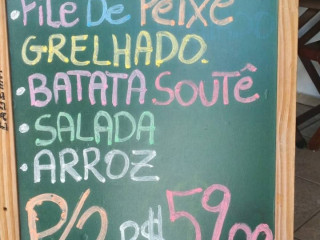 FILE DE PEIXE
GRELHADO.
• BATATA SOUTÊ
• SALADA
• ARROZ
P/2 R$59,00